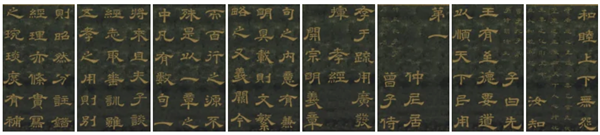 則昭然分註錯
經理亦條貫寫
之琬琰庶有補
將來且夫子談
經志取垂訓雖
五孝之用則別
而百行之源不
殊是以一章之
中凡有數句一
句之內意有兼
明具載則文繁
略之又義闕今
存于疏用廣發
揮孝經
開宗明義章
第一
仲尼居
曾子侍
子曰先
王有至德要道
以順天下民用
和睦上下無怨
汝知